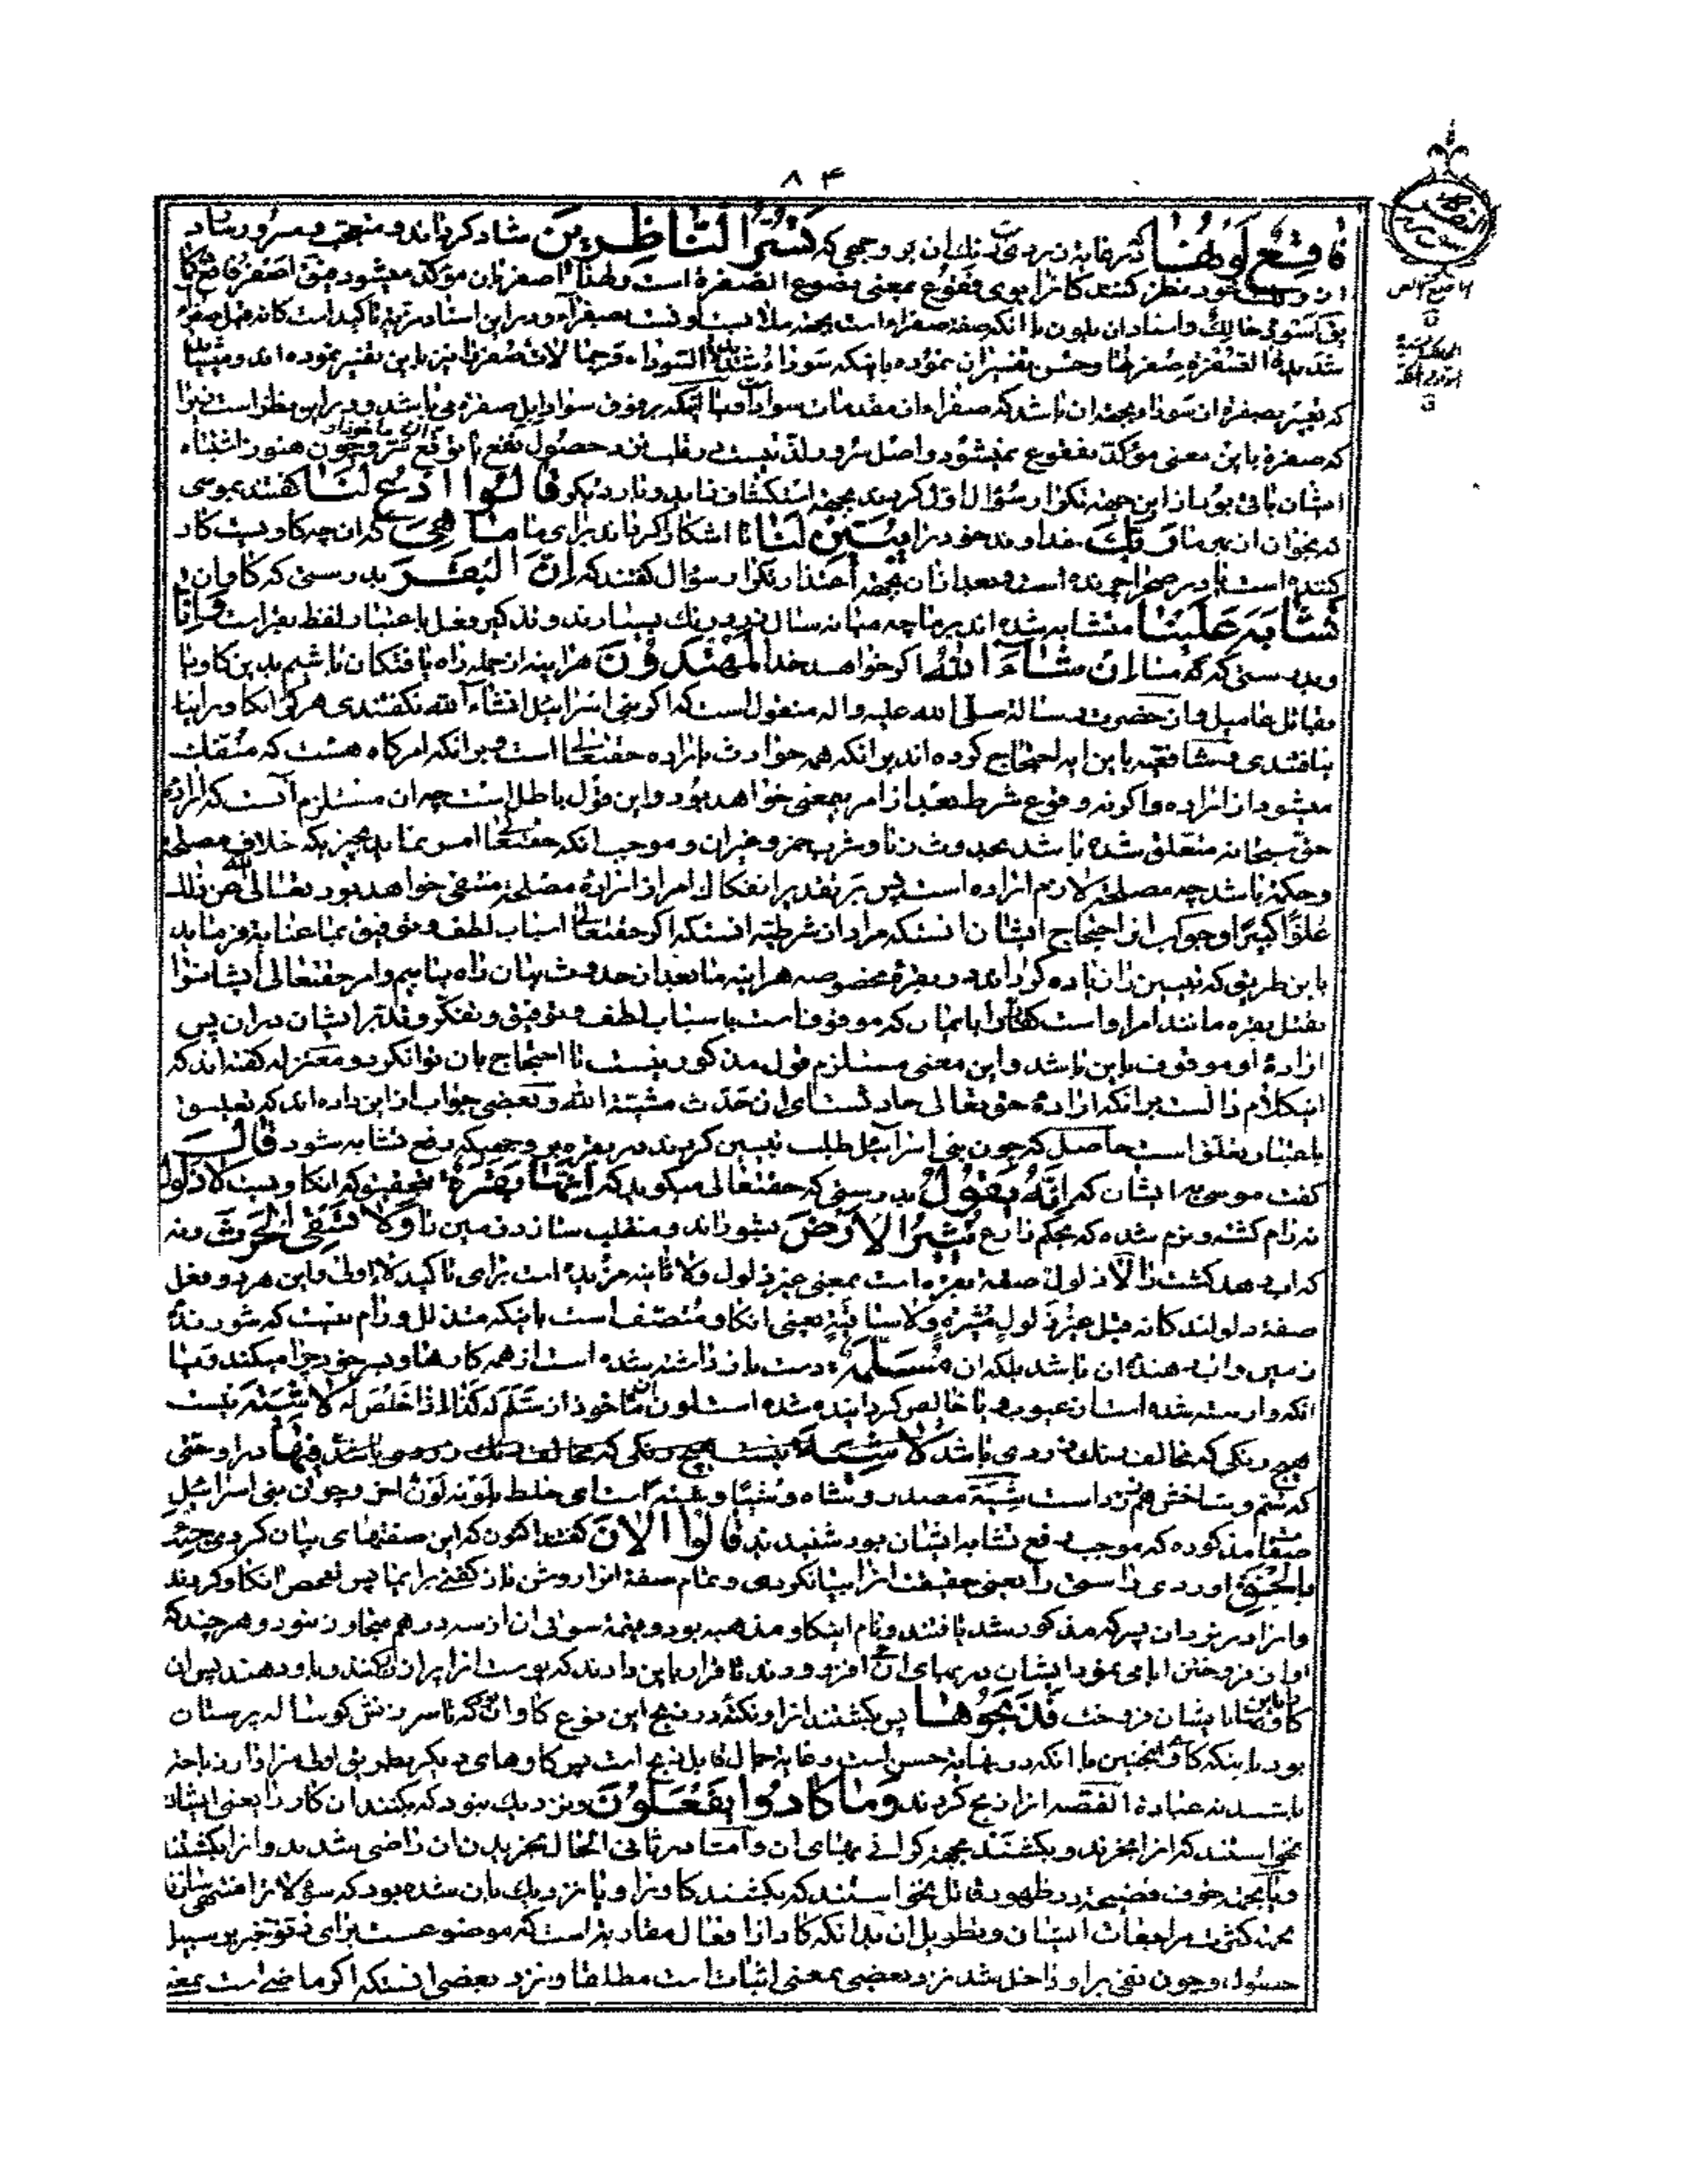 ۸۴
فاقِعٌ لَوْنُها که بغایة زردی رنک ان بر وجهی که تَسُرُّ النّاظِرینَ شاد کرداند و متعجب و مسرور سازد
از رنک خود نظر کنندکانرا بوی فقوع بمعنی نصوع الصفرة است و لهذا اصفر بان مؤکد میشود یق اصفر فاقع کما
یق اسود حالک و اسناد ان بلون با انکه صفة صفراء است بجهة ملابست اوست بصفراء و در این اسناد مزیة تاکید است کانه قیل صفراء
شدیدة الصفرة صفرتها و حسن تفسیر ان نموده باینکه سوداء شدیدة السواد و جمالات صفر را نیز باین تفسیر نموده اند و
که تعبیر بصفرة از سواد بجهة ان باشد که صفراء از مقدمات سواد است و یا انکه بر فوق سواد ابل صفرة می باشد و در این نظر است زیرا
که صفرة باین معنی مؤکد بفقوع نمیشود و اصل سرور لذتیست در قلب نزد حصول نفع یا توقع و چون هنوز اشتباه
ایشان باقی بود از این جهة تکرار سؤال اول کردند بجهة استکشاف زاید و بار دیکر قالُوا ادْعُ لَنا کفتند بموسی
که بخوان از بهر ما رَبَّکَ خداوند خود را یُبَیِّنْ لَنا تا اشکارا کرداند برای ما ما هِیَ که ان چه کاویست کار
کننده است یا در صحرا چرنده است و بعد از ان بجهة اعتذار تکرار سؤال کفتند که اِنَّ الْبَقَرَ بدرستی که کاوان
تَشابَهَ عَلَیْنا متشابه شده اند بر ما چه میانه سال زرد رنک بسیارند و تذکیر فعل باعتبار لفظ بقر است وَاِنّا
و بدرستی که ما اِنْ شآءَ اللهُ اکر خواهد خدا لَمُهْتَدُونَ هراینه از جمله راه یافتکان باشیم بدین کاو یا
بقاتل عامیل و از حضرت رسالة صلی الله علیه و اله منقول است که اکر بنی اسرائیل انشاء الله نکفتندی هرکز انکاو را نیا
نیافتندی و مشافعیه باین ایه احتجاج کرده اند بر انکه همه حوادث باراده حقتعالی است و بر انکه امر کاه هست که منفک
میشود از اراده و اکر نه وقوع شرط بعد از امر بیمعنی خواهد بود و این قول باطل است چه ان مستلزم آنست که اراده
حق سبحانه متعلق شده باشد بحدوث زنا و شرب خمر و غیر ان و موجب انکه حقتعالی امر نماید بچیزیکه خلاف مصلحة
و حکمة باشد چه مصلحة لازم اراده است پس بر تقدیر انفکاک امر از اراده مصلحة منتفی خواهد بود تعالی الله عن ذلک
علوّا کبیرا و جواب از احتجاج ایشان انستکه مراد از شرطیه انستکه اکر حقتعالی اسباب لطف و توفیق بما عنایة فرماید
باین طریق که تبیین را زیاده کرداند در بقرهٔ مخصوصه هراینه ما بعد از حدوث بیان راه یابیم و امر حقتعالی ایشانرا
بقتل بقره مانند امر اوست کفار را بایمان که موقوفست باسباب لطف و توفیق و تفکر و تدبر ایشان در ان پس
ارادهٔ او موقوف باین باشد و این معنی مستلزم قول مذکور نیست تا احتجاج بان توانکرد و معتزله کفته اند که
اینکلام دالست بر انکه ارادهٔ حق تعالی حادثست ای ان حدث مشیة الله و بعضی جواب از این داده اند که تعلیق
باعتبار تعلق است حاصل که چون بنی اسرآئیل طلب تبیین کردند در بقره بر وجهیکه رفع تشابه شود قالَ
کفت موسی مر ایشان که اِنَّهُ یَقُولُ بدرستی که حقتعالی میکوید که اِنَّها بَقَرَةٌ بتحقیق که انکاویست لا ذَلُولٌ
نه رام کشته و نرم شده که بحکم زارع تُثیرُ الْاَرْضَ بشوراند و منقلب سازد زمین را وَلا تَسْقِی الْحَرْثَ و نه
که اب دهد کشت را لا ذلول صفة بقره است بمعنی غیر ذلول و لا ثانیه مزیده است برای تاکید لا اولی و این هر دو فعل
صفة ذلولند کانه قیل غیر ذلول مثیرة و لا ساقیة یعنی انکاو متصف است باینکه متذلل و رام نیست که شورنده
زمین و اب دهنده ان باشد بلکه ان مُسَلَّمَةٌ دست باز داشته شده است از همه کارها و بسر خود چرا میکند و یا
انکه وارسته شده است از عیوب و یا خالص کردانیده شده است لون ان ماخوذ از سلم له کذا اذا خلص له لا شِیَةَ نیست
هیچ رنکی که مخالف رنک زردی باشد لا شِیَةَ نیست هیچ رنکی که مخالف رنک زردی باشد فیها در او حتی
که سُم و شاخش هم زرد است شیة مصدر وشاه وشیا و شیة است ای خلط بلونه لون اخر و چون بنی اسرائیل
صفات مذکوره که موجب رفع تشابه ایشان بود شنیدند قالُوا الْانَ کفتند اکنون که این صفتهای بیان کردی جِئْتَ
بِالْحَقِّ اوردی راستی را یعنی حقیقت انرا بیانکردی و تمام صفة انرا روشن باز کفتی برای ما پس تفحص انکاو کردند
و انرا در نزد ان پسر که مذکور شد یافتند و نام اینکاو مذهبه بود و قیمة سوقی ان از سه درهم متجاوز نبود و هر چند که
او از فروختن ابا می نمود ایشان در بهای ان افزودند تا قرار باین دادند که پوست انرا پر از زر کنند و باو دهند پس ان
کاو را باین رضا بایشان فروخت فَذَبَحُوها پس بکشتند انرا و نکته در ذبح این نوع کاو انکه تا سرزنش کوساله پرستان
بود باینکه کاو اینچنین با انکه در نهایة حسن است و غایة جمال قابل ذبح است پس کاوهای دیکر بطریق اولی سزاوار ذبح
باشند نه عبادة القصه انرا ذبح کردند وَما کادُوا یَفْعَلُونَ و نزدیک نبود که بکنند ان کار را یعنی ایشان
نخواستند که انرا بخرند و بکشند بجهة کرانی بهای ان و اما در ثانی الحال بخریدن ان راضی شدند و انرا بکشتند
و یا بجهة خوف فضیحة در ظهور قاتل نخواستند که بکشند کاو را و یا نزدیک بان شده بود که سؤالات را منتهی نسازند
بجهة کثرت مراجعات ایشان و تطویل ان بدانکه کاد از افعال مقاربه است که موضوعست برای دنو خبر بر سبیل
حصول و چون نفی بر او داخل شد نزد بعضی بمعنی اثبات است مطلقا و نزد بعضی انستکه اکر ماضی است بمعنی